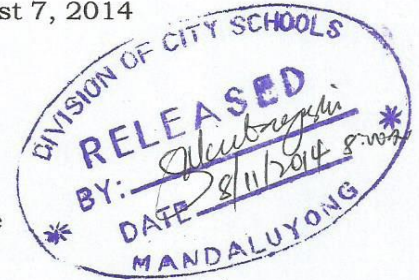 st 7, 2014
DIVISION OF CITY SCHOOLS
RELEASED
BY:
DATE 8/11/2014
MANDALUYONG
e